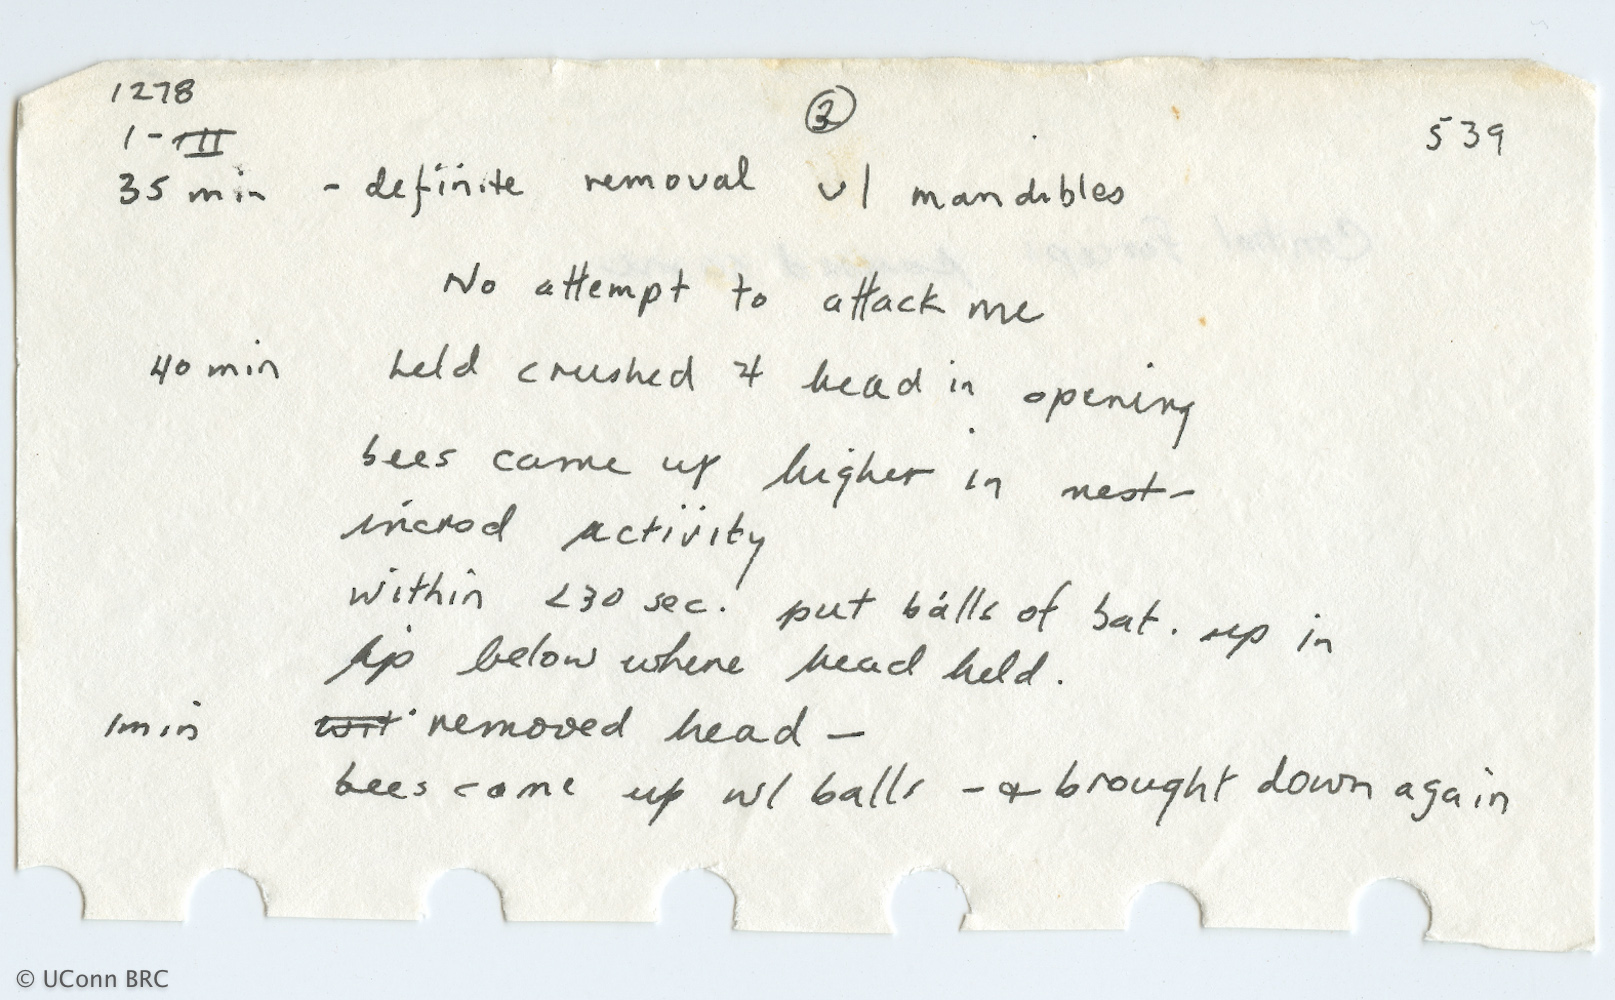 1278
3
539
1-III
35 min - definite removal w/ mandibles
No attempt to attack me
40 min held crushed 4 head in opening
bees came up higher in nest-
incrod activity
within <30 sec. put balls of bat. up in
lip below where head held.
1min removed head -
bees come up w/ balls - & brought down again
© UConn BRC